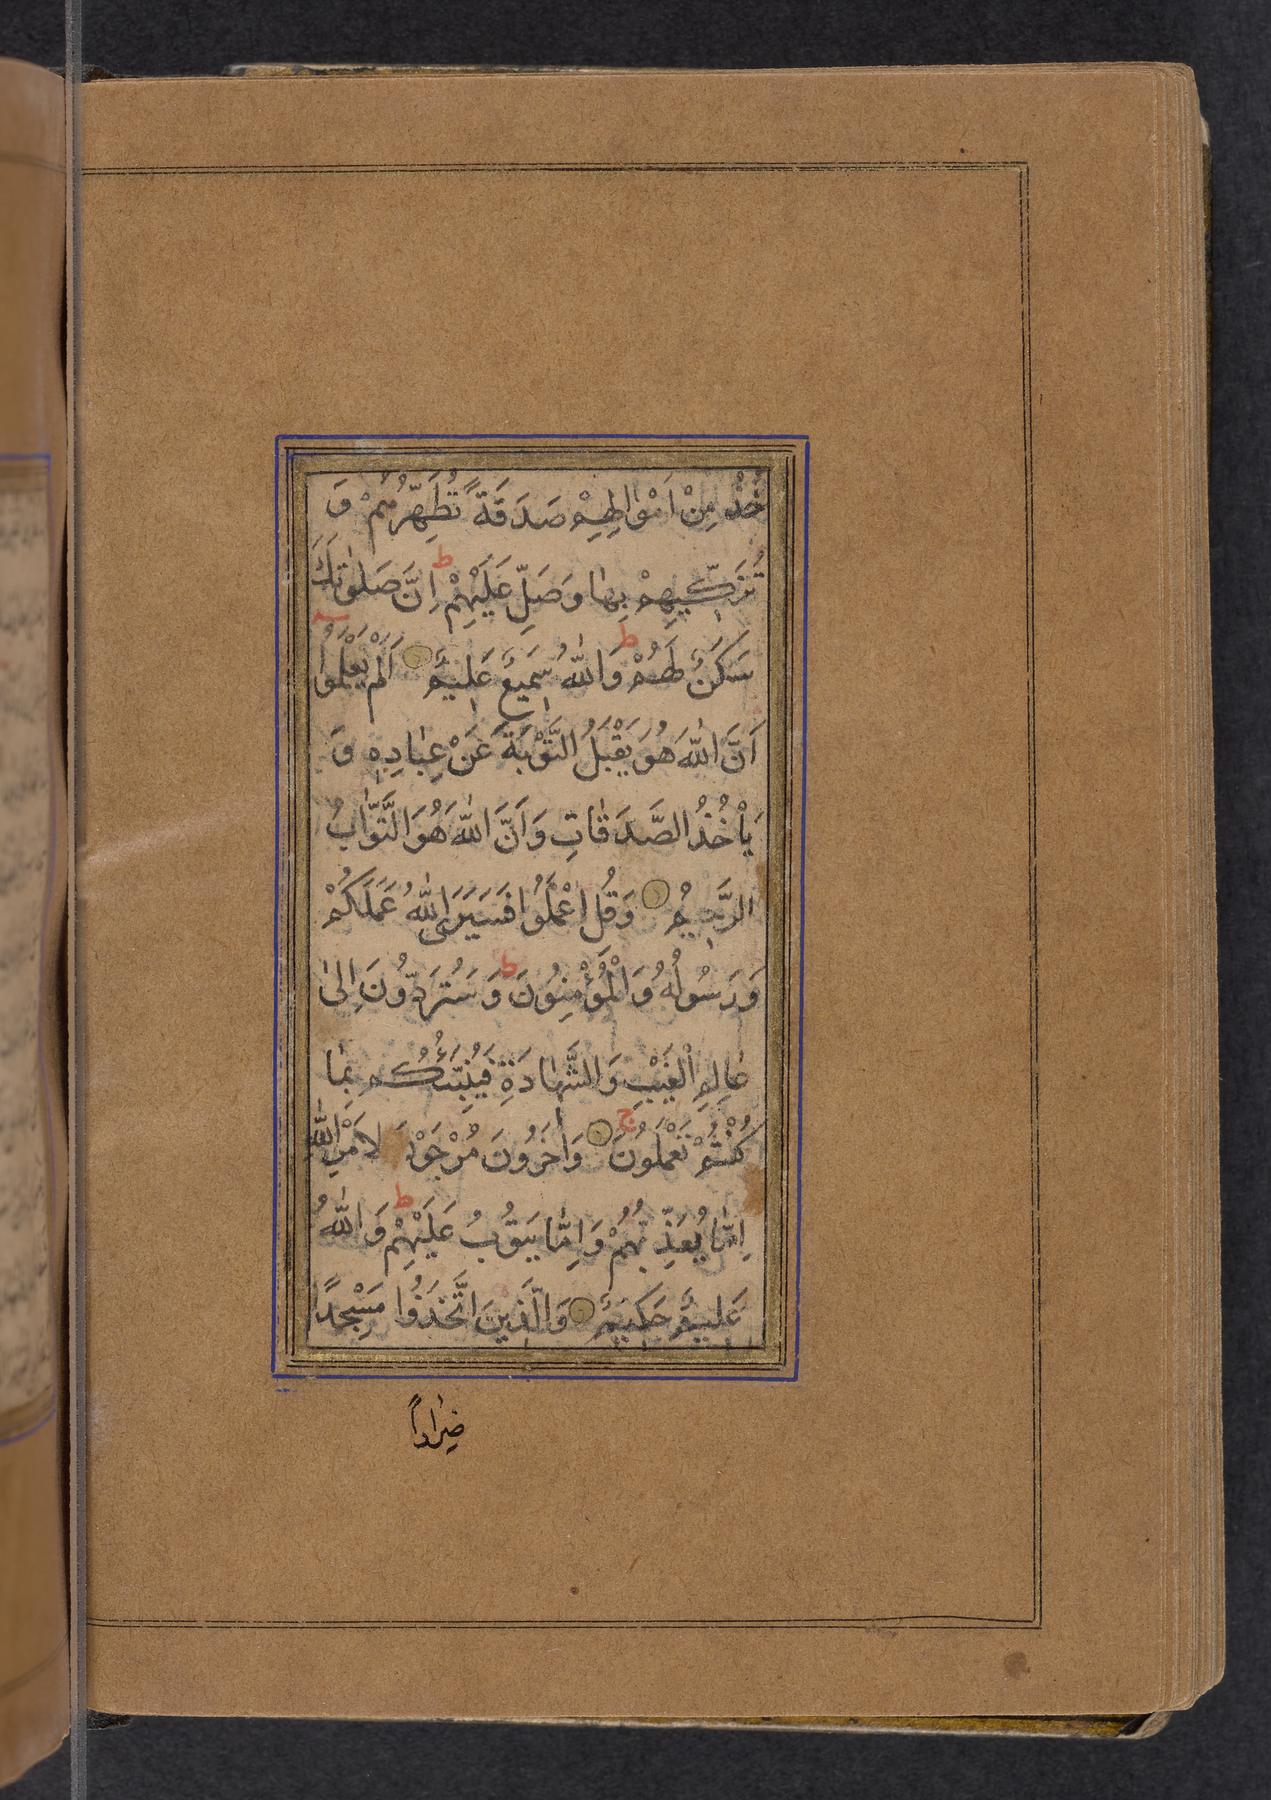 خُذْ مِنْ اَمْوٰالِهِمْ صَدَقَةً تُطَهِّرُهُمْ وَ
تُزَكّٖيهِمْ بِهٰا وَصَلِّ عَلَيْهِمْ ط اِنَّ صَلوٰتَكَ
سَكَنٌ لَهُمْ ط وَاللّٰهُ سَمٖيعٌ عَلٖيمٌ اَلَمْ يَعْلَمُوا
اَنَّ اللّٰهَ هُوَ يَقْبَلُ التَّوْبَةَ عَنْ عِبٰادِهٖ وَ
يَاْخُذُ الصَّدَقٰاتِ وَاَنَّ اللّٰهَ هُوَ التَّوّٰابُ
الرَّحٖيمُ وَقُلِ اعْمَلُوا فَسَيَرَى اللّٰهُ عَمَلَكُمْ
وَرَسُولُهُ وَالْمُؤْمِنُونَ ط وَسَتُرَدُّونَ اِلىٰ
عٰالِمِ الْغَيْبِ وَالشَّهٰادَةِ فَيُنَبِّئُكُمْ بِمٰا
كُنْتُمْ تَعْمَلُونَ ج وَاٰخَرُونَ مُرْجَوْنَ لِاَمْرِ اللّٰهِ
اِمّٰا يُعَذِّبُهُمْ وَاِمّٰا يَتُوبُ عَلَيْهِمْ ط وَاللّٰهُ
عَلٖيمٌ حَكٖيمٌ وَالَّذٖينَ اتَّخَذُوا مَسْجِدًا
ضِرٰاراً